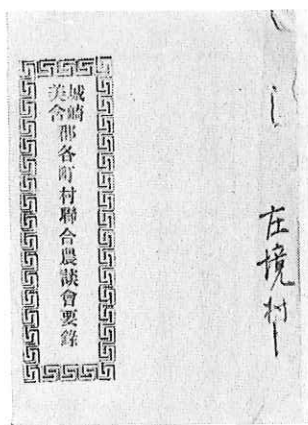 在境村
城崎美含郡各町村聯合農談會要錄